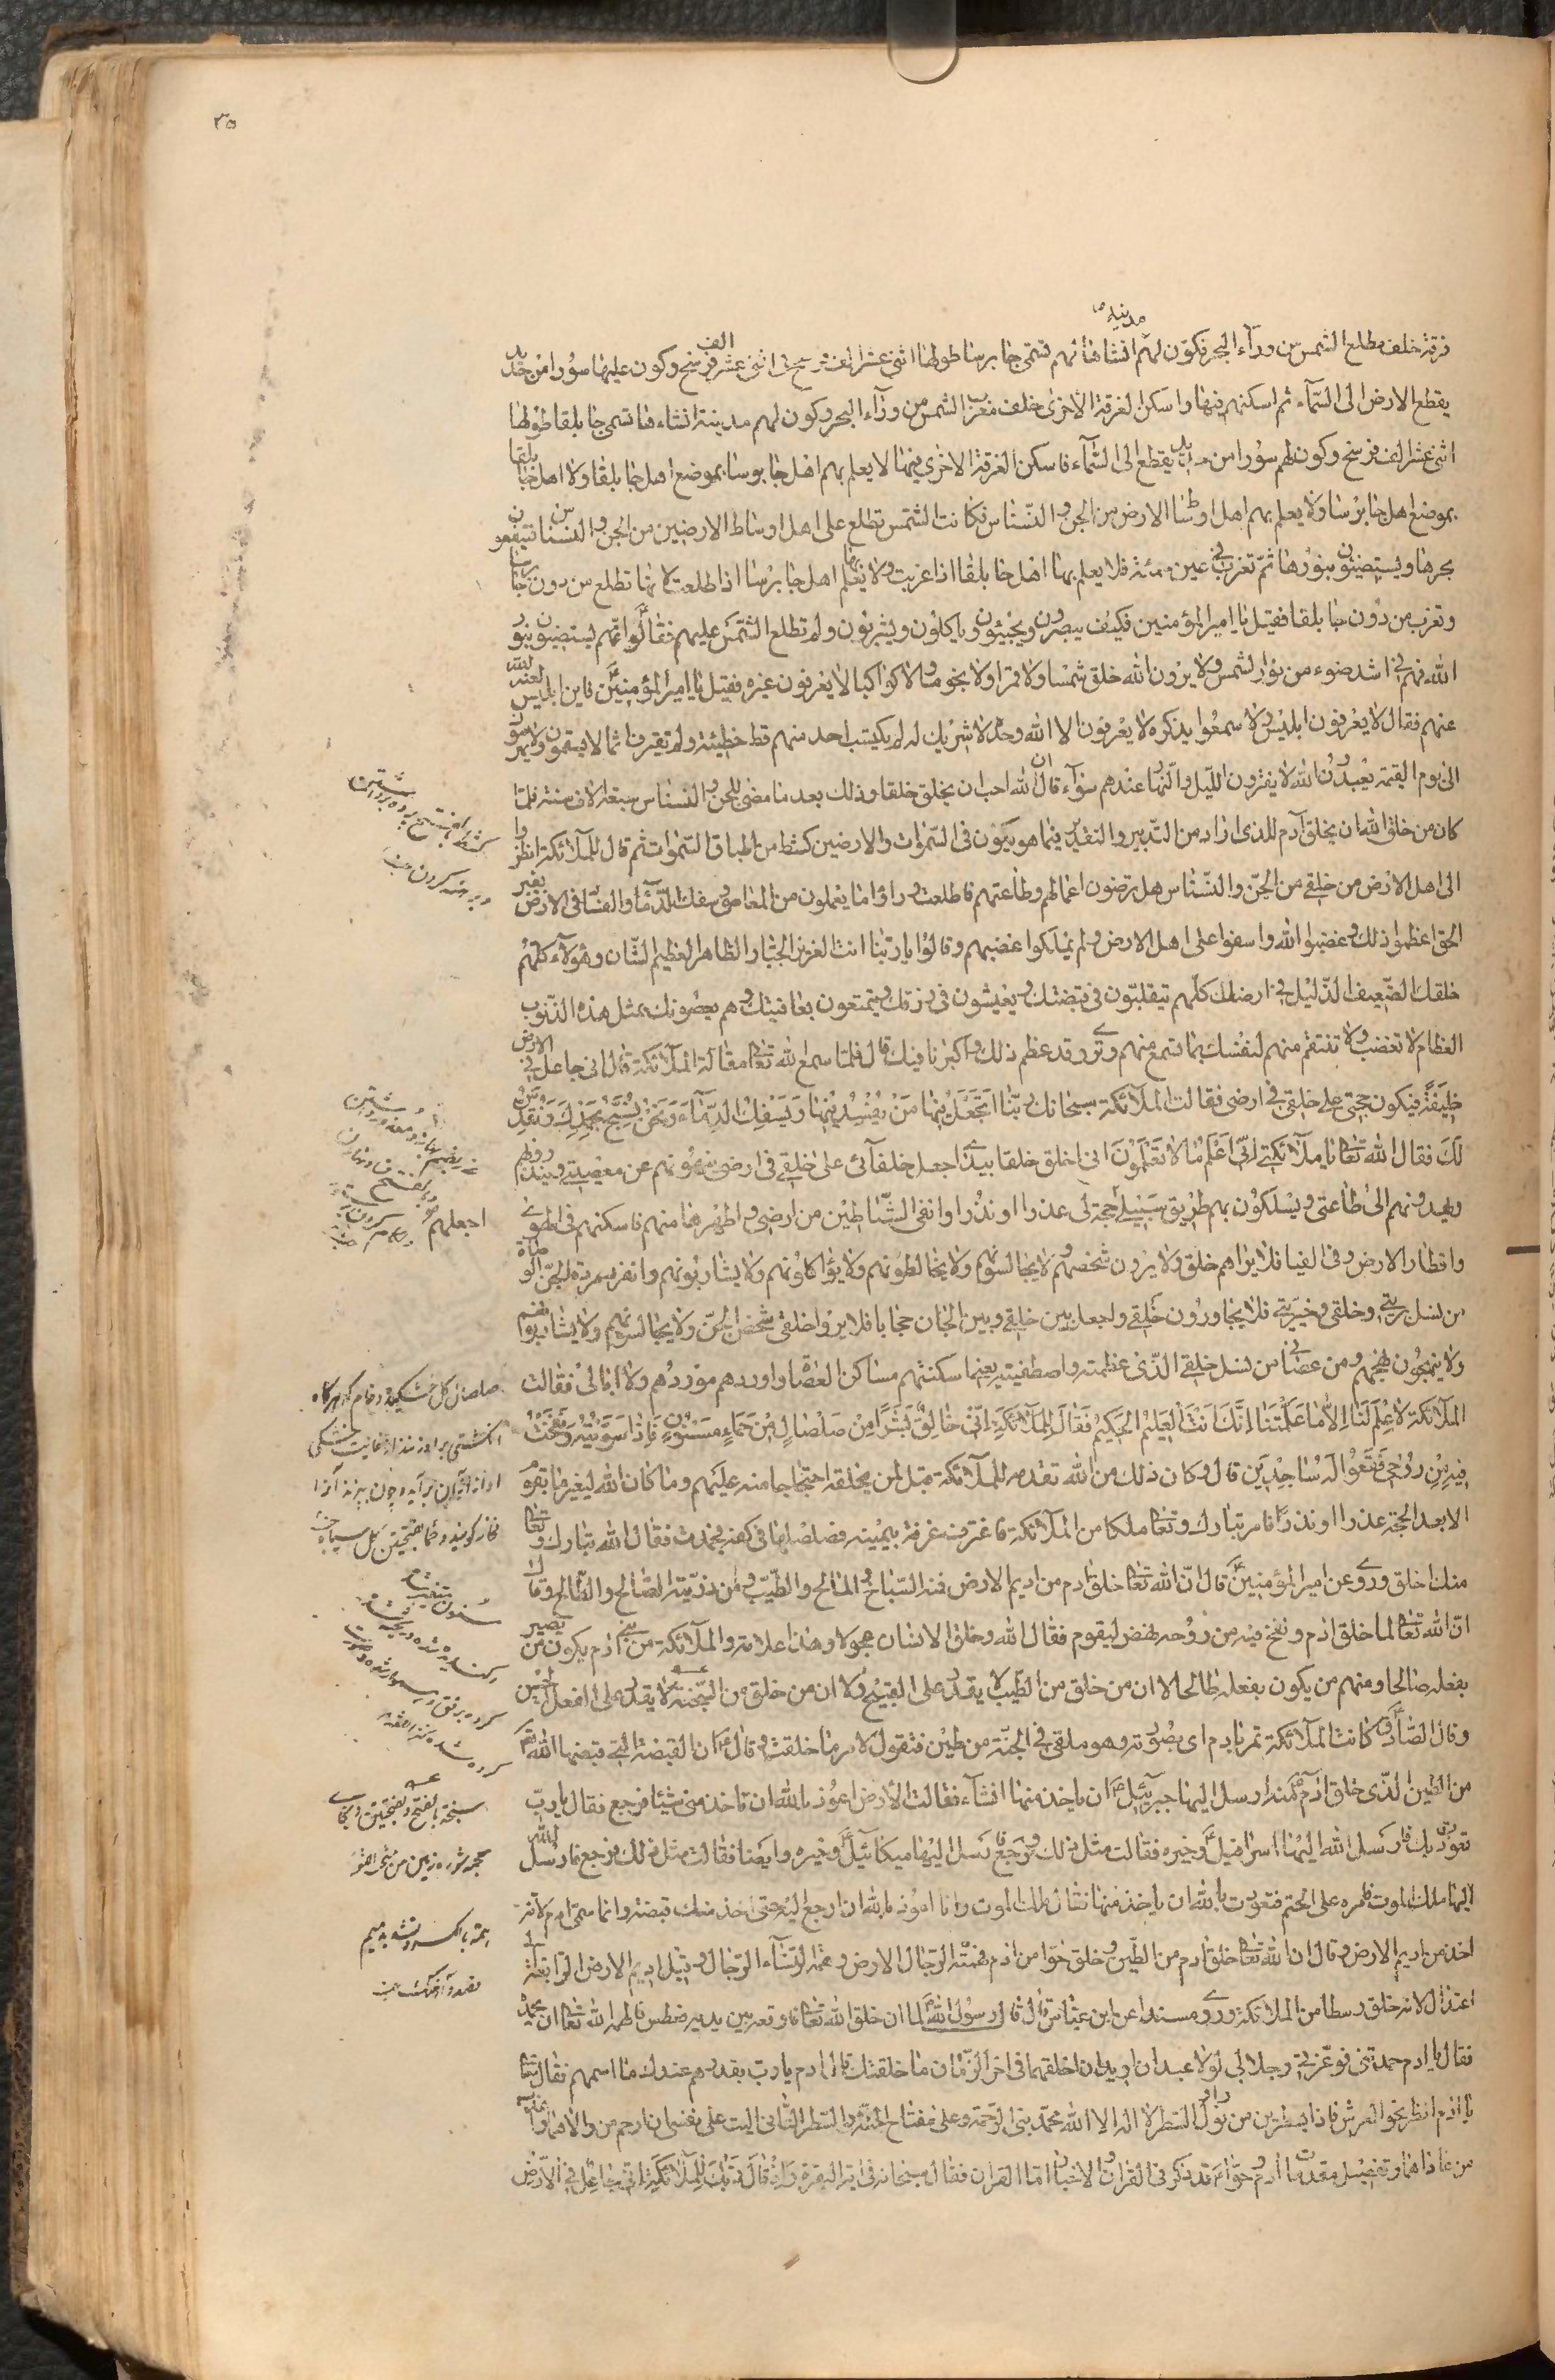 ٣٥
مدينة
فرقة خلف مطلع الشمس من ورآء البحر فكون لهم انشاها لهم تسمى جابرسا طولها اثنى عشر الف فرسخ فى اثنى عشر الف فرسخ وكون عليها سورا من حديد
يقطع الارض الى السمآء ثم اسكنهم فيها واسكن الفرقة الاخرى خلف مغرب الشمس من ورآء البحر وكون لهم مدينة انشاءها تسمى جابلقا طولها
اثنى عشر الف فرسخ وكون لهم سورا من حديد يقطع الى السمآء فاسكن الفرقة الاخرى فيها لا يعلم بهم اهل جابرسا بموضع اهل جابلقا ولا اهل جابلقا
بموضع اهل جابرسا ولا يعلم بهم اهل اوساط الارض من الجن والنسناس فكانت الشمس تطلع على اهل اوساط الارضين من الجن والنسناس فينتفعون
بحرها ويستضيئون بنورها ثم تغرب فى عين حمئة فلا يعلم بها اهل جابلقا اذا غربت ولا يعلم بها اهل جابرسا اذا طلعت لانها تطلع من دون جابرسا
وتغرب من دون جابلقا فقيل يا امير المؤمنين فكيف يبصرون ويحيون وياكلون ويشربون ولم تطلع الشمس عليهم فقال انهم يستضيئون بنور
الله فهم فى اشد ضوء من نور الشمس ولا يرون الله خلق شمسا ولا قمرا ولا نجوما ولا كواكبا لا يعرفون غيره فقيل يا امير المؤمنين فاين ابليس لعنه الله
عنهم فقال لا يعرفون ابليس ولا سمعوا بذكره لا يعرفون الا الله وحده لا شريك له لم يكتسب احد منهم قط خطيئة ولم تقترف اثما لا يسقمون ولا يموتون
الى يوم القيمة يعبدون الله لا يفترون الليل والنهار عندهم سوآء قال ان الله احب ان يخلق خلقا وذلك بعد ما مضى للجن والنسناس سبعة الاف سنة فلما
كان من خلق الله ان يخلق آدم للذى اراد من التدبير والتقدير فيما هو يكون فى السموات والارضين كشط من اطباق السموات ثم قال للملآئكة انظروا
الى اهل الارض من خلقى من الجن والنسناس هل ترضون اعمالهم وطاعتهم فاطلعت وراوا ما يعملون من المعاصى وسفك الدمآء والفساد فى الارض بغير
الحق اعظموا ذلك وغضبوا الله واسفوا على اهل الارض ولم يملكوا غضبهم وقالوا يا ربنا انت العزيز الجبار الظاهر العظيم الشان وهؤلآء كلهم
خلقك الضعيف الذليل فى ارضك كلهم يتقلبون فى قبضتك ويعيشون فى رزقك ويتمتعون بعافيتك وهم يعصونك بمثل هذه الذنوب
العظام لا تغضب ولا تنتقم منهم لنفسك بما تسمع منهم وترى وقد عظم ذلك واكبرنا فيك قال فلما سمع الله تعالى مقالة الملآئكة قال انى جاعل فى الارض
خليفة فيكون حجتى على خلقى فى ارضى فقالت الملآئكة سبحانك ربنا اتجعل فيها من يفسد فيها ويسفك الدمآء ونحن نسبح بحمدك ونقدس
لك فقال الله تعالى يا ملآئكتى انى اعلم ما لا تعلمون انى اخلق خلقا بيدى اجعل خلفآئى على خلقى فى ارضى ينهونهم عن معصيتى وينذرونهم
ويهدونهم الى طاعتى ويسلكون بهم طريق سبيلى حجة لى عذرا او نذرا وانفى الشياطين من ارضى واطهرها منهم فاسكنهم فى الهوى
واقطار الارض وفى الفيافى فلا يراهم خلق ولا يرون شخصهم ولا يجالسونهم ولا يخالطونهم ولا يؤاكلونهم ولا يشاربونهم وانفر مردة الجن العصاة
من نسل بريتى وخلقى وخيرتى فلا يجاورون خلقى واجعل بين خلقى وبين الجان حجابا فلا يروا خلقى شخص الجن ولا يجالسونهم ولا يشاربونهم
ولا يتهجمون تهجمهم ومن عصانى من نسل خلقى الذى عظمته واصطفيته بغيبى اسكنتهم مساكن العصاة واوردهم موردهم ولا ابالى فقالت
الملآئكة لا علم لنا الا ما علمتنا انك انت العليم الحكيم فقال للملآئكة انى خالق بشرا من صلصال من حماء مسنون فاذا سويته ونفخت
فيه من روحى فقعوا له ساجدين قال وكان ذلك من الله تقدمة للملآئكة قبل ان يخلقه احتجاجا منه عليهم وما كان الله ليغير ما بقوم
الا بعد الحجة عذرا او نذرا فامر تبارك وتعالى ملكا من الملآئكة فاغترف غرفة بيمينه فصلصلها فى كفه فجمدت فقال الله تبارك وتعالى
منك اخلق وروى عن امير المؤمنين قال ان الله تعالى خلق ادم من اديم الارض فمنه السباخ والمالح والطيب ومن ذريته الصالح والطالح وقال
ان الله تعالى لما خلق ادم ونفخ فيه من روحه نهض ليقوم فقال الله وخلق الانسان عجولا وهذا علامة والملآئكة من بنى ادم يكون من يصير
بفعله صالحا ومنهم من يكون بفعله طالحا لا ان من خلق من الطيب لا يقدر على القبيح ولا ان من خلق من السبخة لا يقدر على الفعل الحسن
وقال الصادق كانت الملآئكة تمر بادم اى بصورته وهو ملقى فى الجنة من طين فتقول لامر ما خلقت وقال ان القبضة التى قبضها الله
من الطين الذى خلق ادم منه ارسل اليها جبرئيل ان ياخذ منها انشآء فقالت الارض اعوذ بالله ان تاخذ منى شيئا فرجع فقال يا رب
تعوذت بك فارسل الله اليها اسرافيل وخيره فقالت مثل ذلك فرجع فارسل اليها ميكائيل وخيره وايضا فقالت مثل ذلك فرجع فارسل الله
اليها ملك الموت فامره على الحتم فتعوذت بالله ان ياخذ منها فقال ملك الموت وانا اعوذ بالله ان ارجع اليه حتى اخذ منك قبضة وانما سمى ادم لانه
اخذ من اديم الارض وقال ان الله تعالى خلق ادم من الطين وخلق حوا من ادم فهمة الرجال الارض وهمة النسآء الرجال وقيل اديم الارض الرابعة
اعتدال لانه خلق وسطا من الملائكة وروى مسندا عن ابن عباس قال قال رسول الله لما ان خلق الله تعالى ادم وقعد بين يديه فعطس فالهمه الله تعالى ان يحمده
فقال يا ادم حمدتنى فوعزتى وجلالى لولا عبدان اريد ان اخلقهما فى اخر الزمان ما خلقتك قال ادم يا رب بقدرهم عندك ما اسمهم فقال تعالى
يا ادم انظر نحو العرش فاذا بسطرين من نور اول السطر لا اله الا الله محمد نبى الرحمة وعلى مفتاح الجنة والسطر الثانى اليت على نفسى ان ارحم من والاهما واعذب
من عاداهما وتفصيل مقدمات ادم وحوآء قد ذكر فى القران والاخبار اما القران فقال سبحانه فى اية البقرة واذ قال ربك للملآئكة انى جاعل فى الارض
اجعلهم
صلصال كل خشكيده وخام كه هركاه
انكشتى بر او زنند از غايت خشكى
اواز از ان برآيد وچون بپزند آنرا
فخار كويند وحما بفتحتين كل سياه
سبخة بالفتح وبفتحتين
همة بالكسر وتشديد ميم